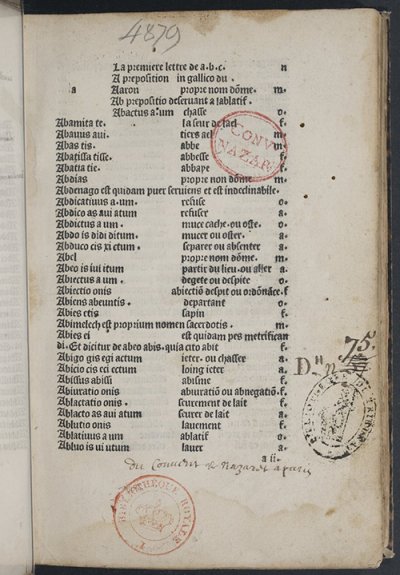 4879
La premiere lettre de a.b.c. n
A preposition in gallico du.
a Aaron propre nom dõme. m.
Ab prepositio deseruant a lablatif.
Abactus a.um chasse o.
Abamita te. la seur de lael f.
Abauus aui. tiers ael m.
Abas tis. abbe m.
Abatissa tisse. abbesse f.
Abatia tie. abbaye f.
Abdias propre nom dõme. m.
Abdenago est quidam puer seruiens et est indeclinabile.
Abdicatiuus a.um. refuse o.
Abdico as aui atum refuser a.
Abdictus a um. muce cache.ou oste. o.
Abdo is didi ditum. mucer ou oster. a.
Abduco cis xi ctum. separer ou absenter a.
Abel propre nom dõme. m.
Abeo is iui itum partir du lieu.ou aller a
Abiectus a um. degete ou despite o.
Abiectio onis abiectiõ despit ou ordõnãce.f.
Abiens abeuntis. departant o.
Abies etis sapin f.
Abimelech est proprium nomen sacerdotis. m.
Abies ei est quidam pes metrifican
di.Et dicitur de abeo abis.quia cito abit f.
Abigo gis egi actum ieter.ou chasser a.
Abicio cis eci ectum loing ieter a.
Abissus abissi abisme f.
Abiuratio onis abiuratiõ ou abnegatiõ.f.
Ablactatio onis. seurement de lait f.
Ablacto as aui atum seurer de lait a.
Ablutio onis lauement f.
Ablatiuus a um ablatif o.
Abluo is ui utum lauer a.
a ii.
CONV
NAZAR
75.
D.
du Convent de Nazaret a paris
BIBLIOTHEQUE ROYALE